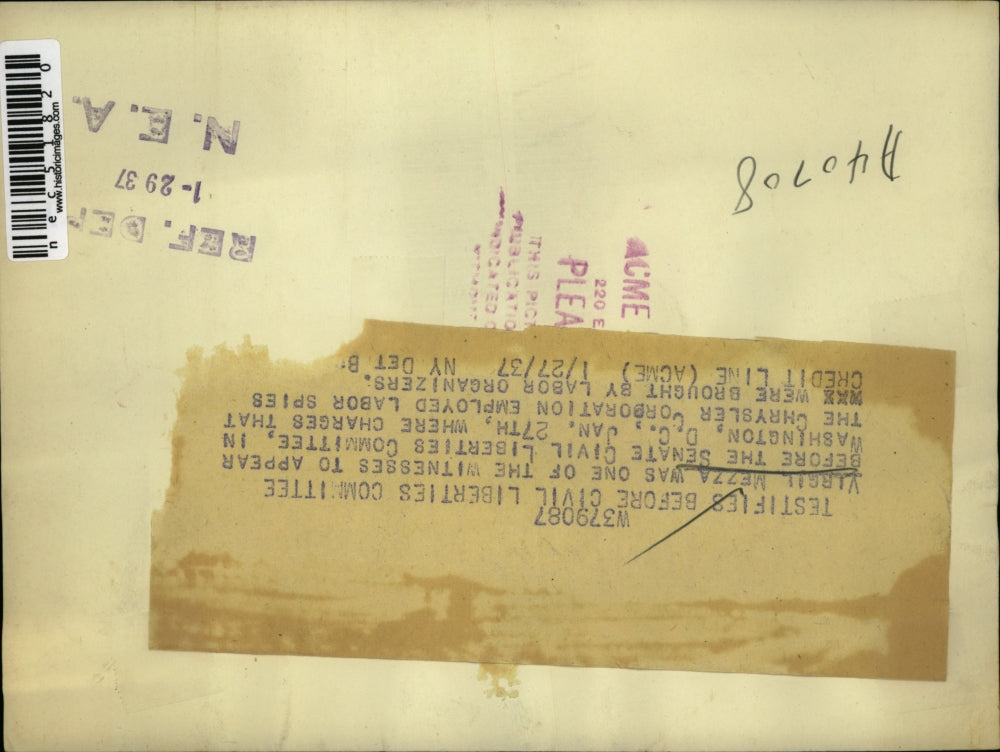 W379087
TESTIFIES BEFORE CIVIL LIBERTIES COMMITTEE
VIRGIL MEZZA WAS ONE OF THE WITNESSES TO APPEAR
BEFORE THE SENATE CIVIL LIBERTIES COMMITTEE, IN
WASHINGTON, D.C., JAN. 27TH, WHERE CHARGES THAT
THE CHRYSLER CORPORATION EMPLOYED LABOR SPIES
WERE BROUGHT BY LABOR ORGANIZERS.
CREDIT LINE (ACME) 1/27/37 NY DET
ACME
220 E
PLEA
THIS PICT
PUBLICATIO
NDICATED
A40708
REF. DE
1-29 37
N.E.A.
www.historicimages.com
nec51820